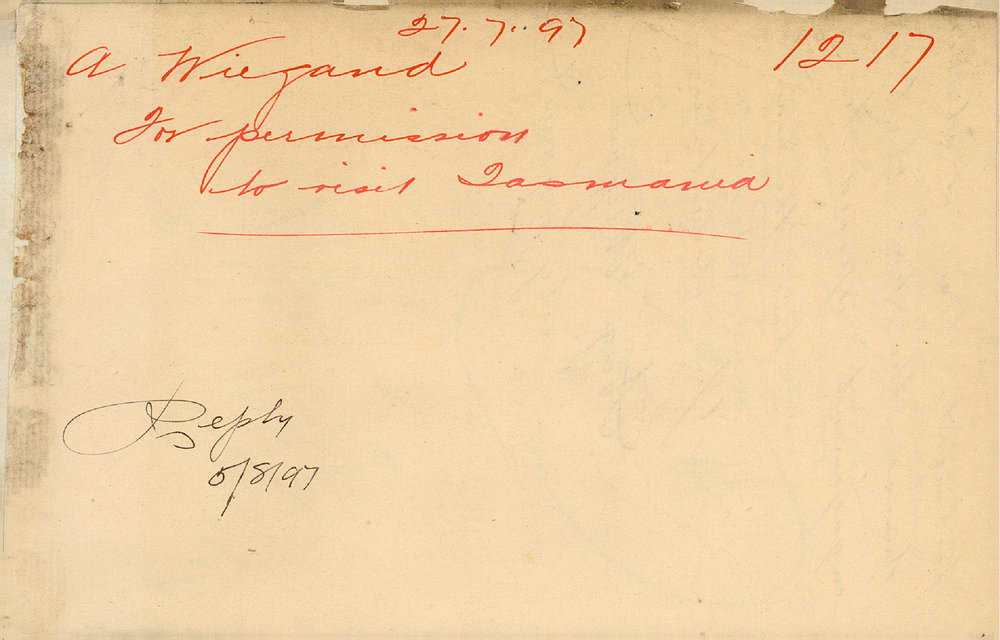 27.7.97
1217
A Wiegand
For permission
to visit Tasmania
Reply
5/8/97